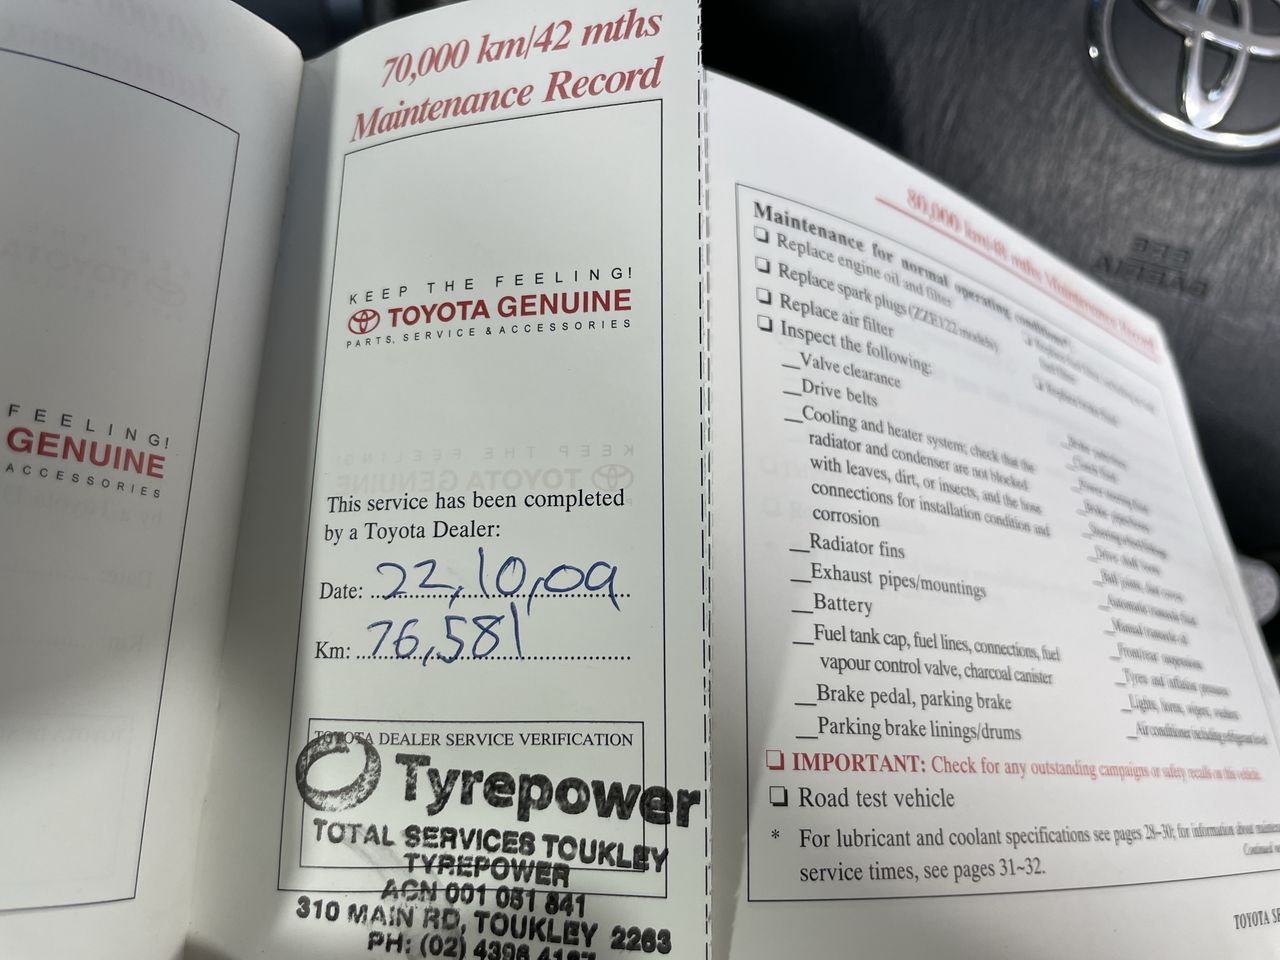 FEELING!
GENUINE
ACCESSORIES
70,000 km/42 mths
Maintenance Record
KEEP THE FEELING!
TOYOTA GENUINE
PARTS, SERVICE & ACCESSORIES
This service has been completed
by a Toyota Dealer:
Date: 22,10,09
Km: 76,581
TOYOTA DEALER SERVICE VERIFICATION
Tyrepower
TOTAL SERVICES TOUKLEY
TYREPOWER
ACN 001 051 841
310 MAIN RD, TOUKLEY 2263
PH: (02) 4396
80,000 km/48 mths Maintenance Record
Maintenance for normal operating conditions*:
❑ Replace engine oil and filter
❑ Replace spark plugs (ZZE122 models)
❑ Replace air filter
❑ Inspect the following:
__Valve clearance
__Drive belts
__Cooling and heater system; check that the
radiator and condenser are not blocked
with leaves, dirt, or insects, and the hose
connections for installation condition and
corrosion
__Radiator fins
__Exhaust pipes/mountings
__Battery
__Fuel tank cap, fuel lines, connections, fuel
vapour control valve, charcoal canister
__Brake pedal, parking brake
__Parking brake linings/drums
__Steering wheel linkage
__Drive shaft boots
__Ball joints, dust covers
__Automatic transaxle fluid
__Manual transaxle oil
__Front/rear suspension
__Tyres and inflation pressures
__Lights, horns, wipers, washers
__Air conditioner including refrigerant level
❑ IMPORTANT: Check for any outstanding campaigns or safety recalls on this vehicle.
❑ Road test vehicle
* For lubricant and coolant specifications see pages 28~30; for information about
service times, see pages 31~32.
Continued
TOYOTA
SRS
AIRBAG